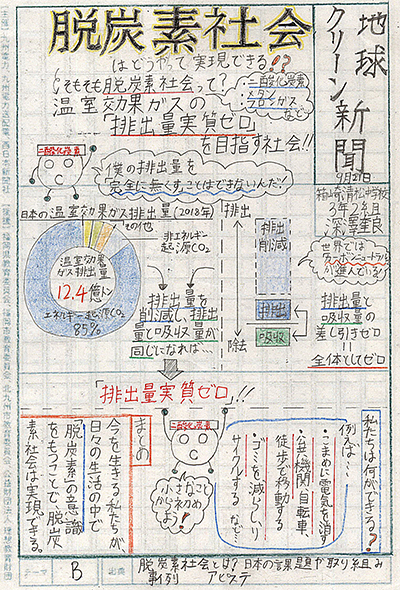 脱炭素社会
はどうやって実現できる!?
地球
クリーン新聞
9月21日
そもそも脱炭素社会って?
二酸化炭素
メタン
フロンガス
など
温室効果ガスの
「排出量実質ゼロ」
を目指す社会!!
二酸化炭素
僕の排出量を
完全に無くすことはできないんだ!
3年2組
世界では
カーボンニュートラル
が進んでいる!
日本の温室効果ガス排出量(2018年)
その他
非エネルギー
起源CO₂
温室効果
ガス排出量
12.4億トン
エネルギー起源CO₂
85%
排出量を
削減し、排出
量と吸収量が
同じになれば…
排出
排出
削減
排出
吸収
除去
排出量と
吸収量の
差し引きゼロ
=
全体としてゼロ
「排出量実質ゼロ」!!
私たちは何ができる?
例えば…
・こまめに電気を消す
・公共機関、自転車、
徒歩で移動する
・ゴミを減らし、リ
サイクルする など…
二酸化炭素
小さなこと
から初め
よう!
まとめ
今を生きる私たちが、
日々の生活の中で
「脱炭素」の意識
をもつことで、脱炭
素社会は実現できる。
テーマ
B
出典
脱炭素社会とは?日本の課題や取り組み
事例 アピステ
【主催】九州電力、九州電力送配電、西日本新聞社
【後援】福岡県教育委員会、福岡市教育委員会、北九州市教育委員会、公益財団法人理想教育財団